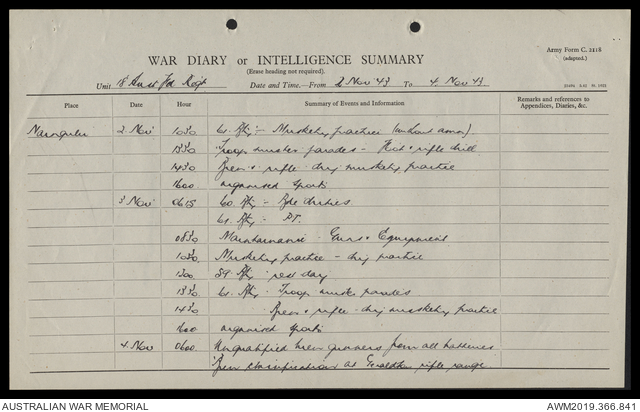 Army Form C. 2118
(adapted.)
WAR DIARY or INTELLIGENCE SUMMARY
(Erase heading not required).
Unit 18 Aust Fd Regt Date and Time.—From 2 Nov 43 To 4 Nov 43
Place Date Hour Summary of Events and Information Remarks and references to Appendices, Diaries, &c.
2 Nov 1030 61 Bty:- Musketry practice (without ammo)
1330 Troop muster parades - Foot & rifle drill
1430 Bren & rifle dry musketry practice
1600 organised sports
3 Nov 0615 60 Bty - Bde duties
61 Bty - PT.
0830 Maintainance Guns & Equipment
1030 Musketry practice - dry practice
1200 59 Bty - rest day
1330 61 Bty - Troop muster parades
1430 Bren & rifle dry musketry practice
1600 organised sports
4 Nov 0600 Unqualified Bren gunners from all batteries
Bren classification at Geraldton rifle range.
AUSTRALIAN WAR MEMORIAL AWM2019.366.841